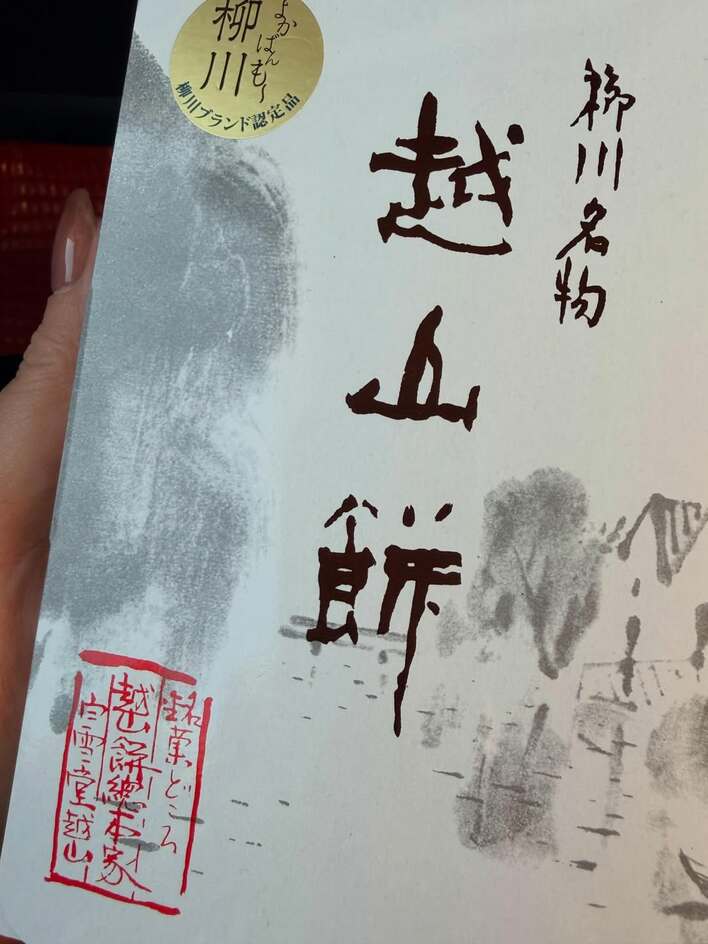 柳川名物
越山餅
よかばんも〜
柳川
柳川ブランド認定品
銘菓どころ
越山餅總本家
白雪堂越山